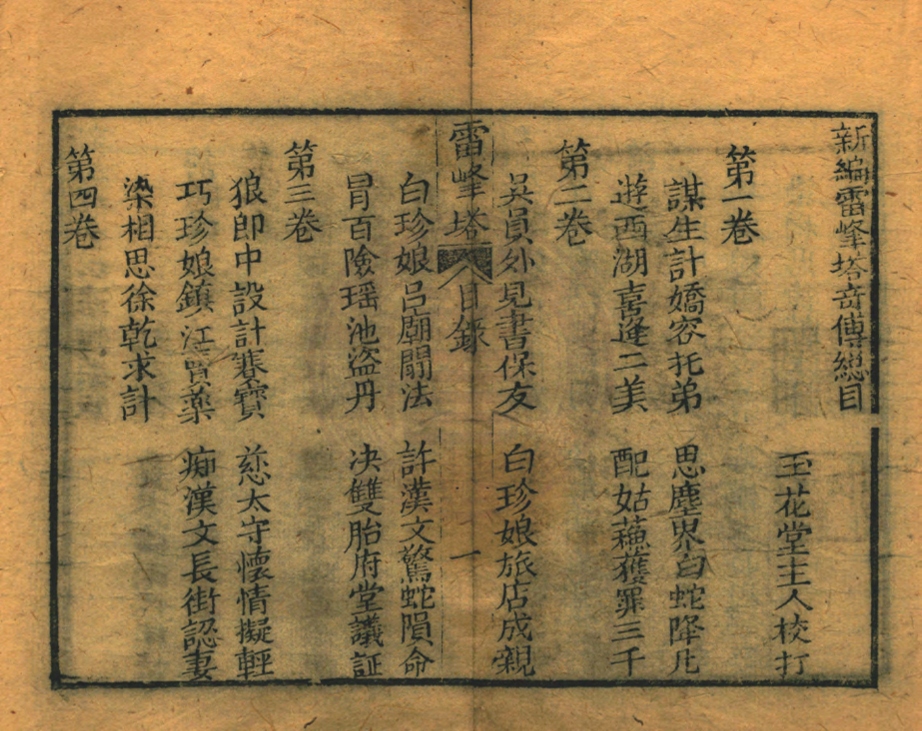 新編雷峰塔竒傳總目
玉花堂主人校訂
第一卷
謀生計嬌容托弟　思塵界白蛇降凡
遊西湖喜逢二美　配姑蘓獲罪三千
第二卷
吳員外見書保友　白珍娘旅店成親
雷峰塔　目錄　一
白珍娘呂廟鬪法　許漢文驚蛇隕命
冒百險瑶池盗丹　决雙胎府堂議証
第三卷
狼郎中設計賽寳　慈太守懷情擬輕
巧珍娘鎮江賣藥　痴漢文長街認妻
染相思徐乾求計
第四卷